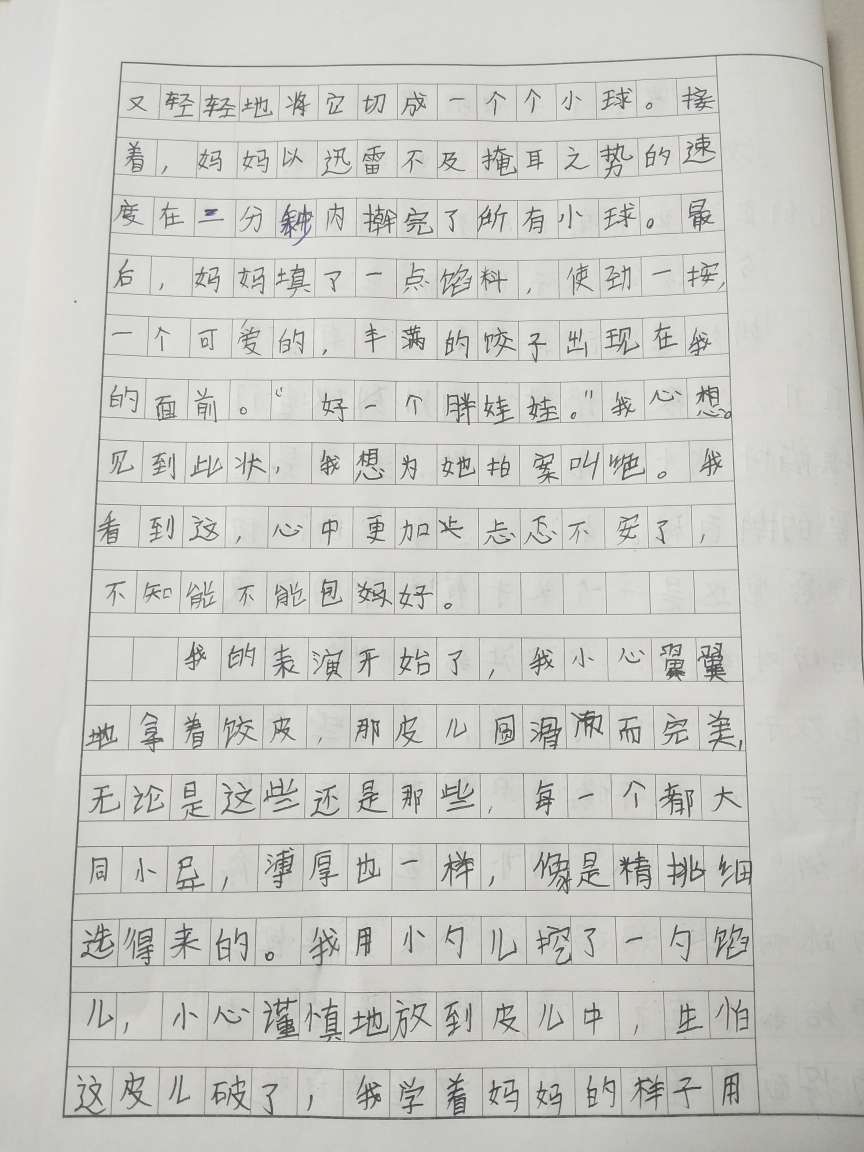 又轻轻地将它切成一个个小球。接
着，妈妈以迅雷不及掩耳之势的速
度在二分秒内擀完了所有小球。最
后，妈妈填了一点馅料，使劲一按，
一个可爱的，丰满的饺子出现在我
的面前。“好一个胖娃娃。”我心想。
见到此状，我想为她拍案叫绝。我
看到这，心中更加忐忑不安了，
不知能不能包妈好。
我的表演开始了，我小心翼翼
地拿着饺皮，那皮儿圆滑而完美，
无论是这些还是那些，每一个都大
同小异，薄厚也一样，像是精挑细
选得来的。我用小勺儿挖了一勺馅
儿，小心谨慎地放到皮儿中，生怕
这皮儿破了，我学着妈妈的样子用